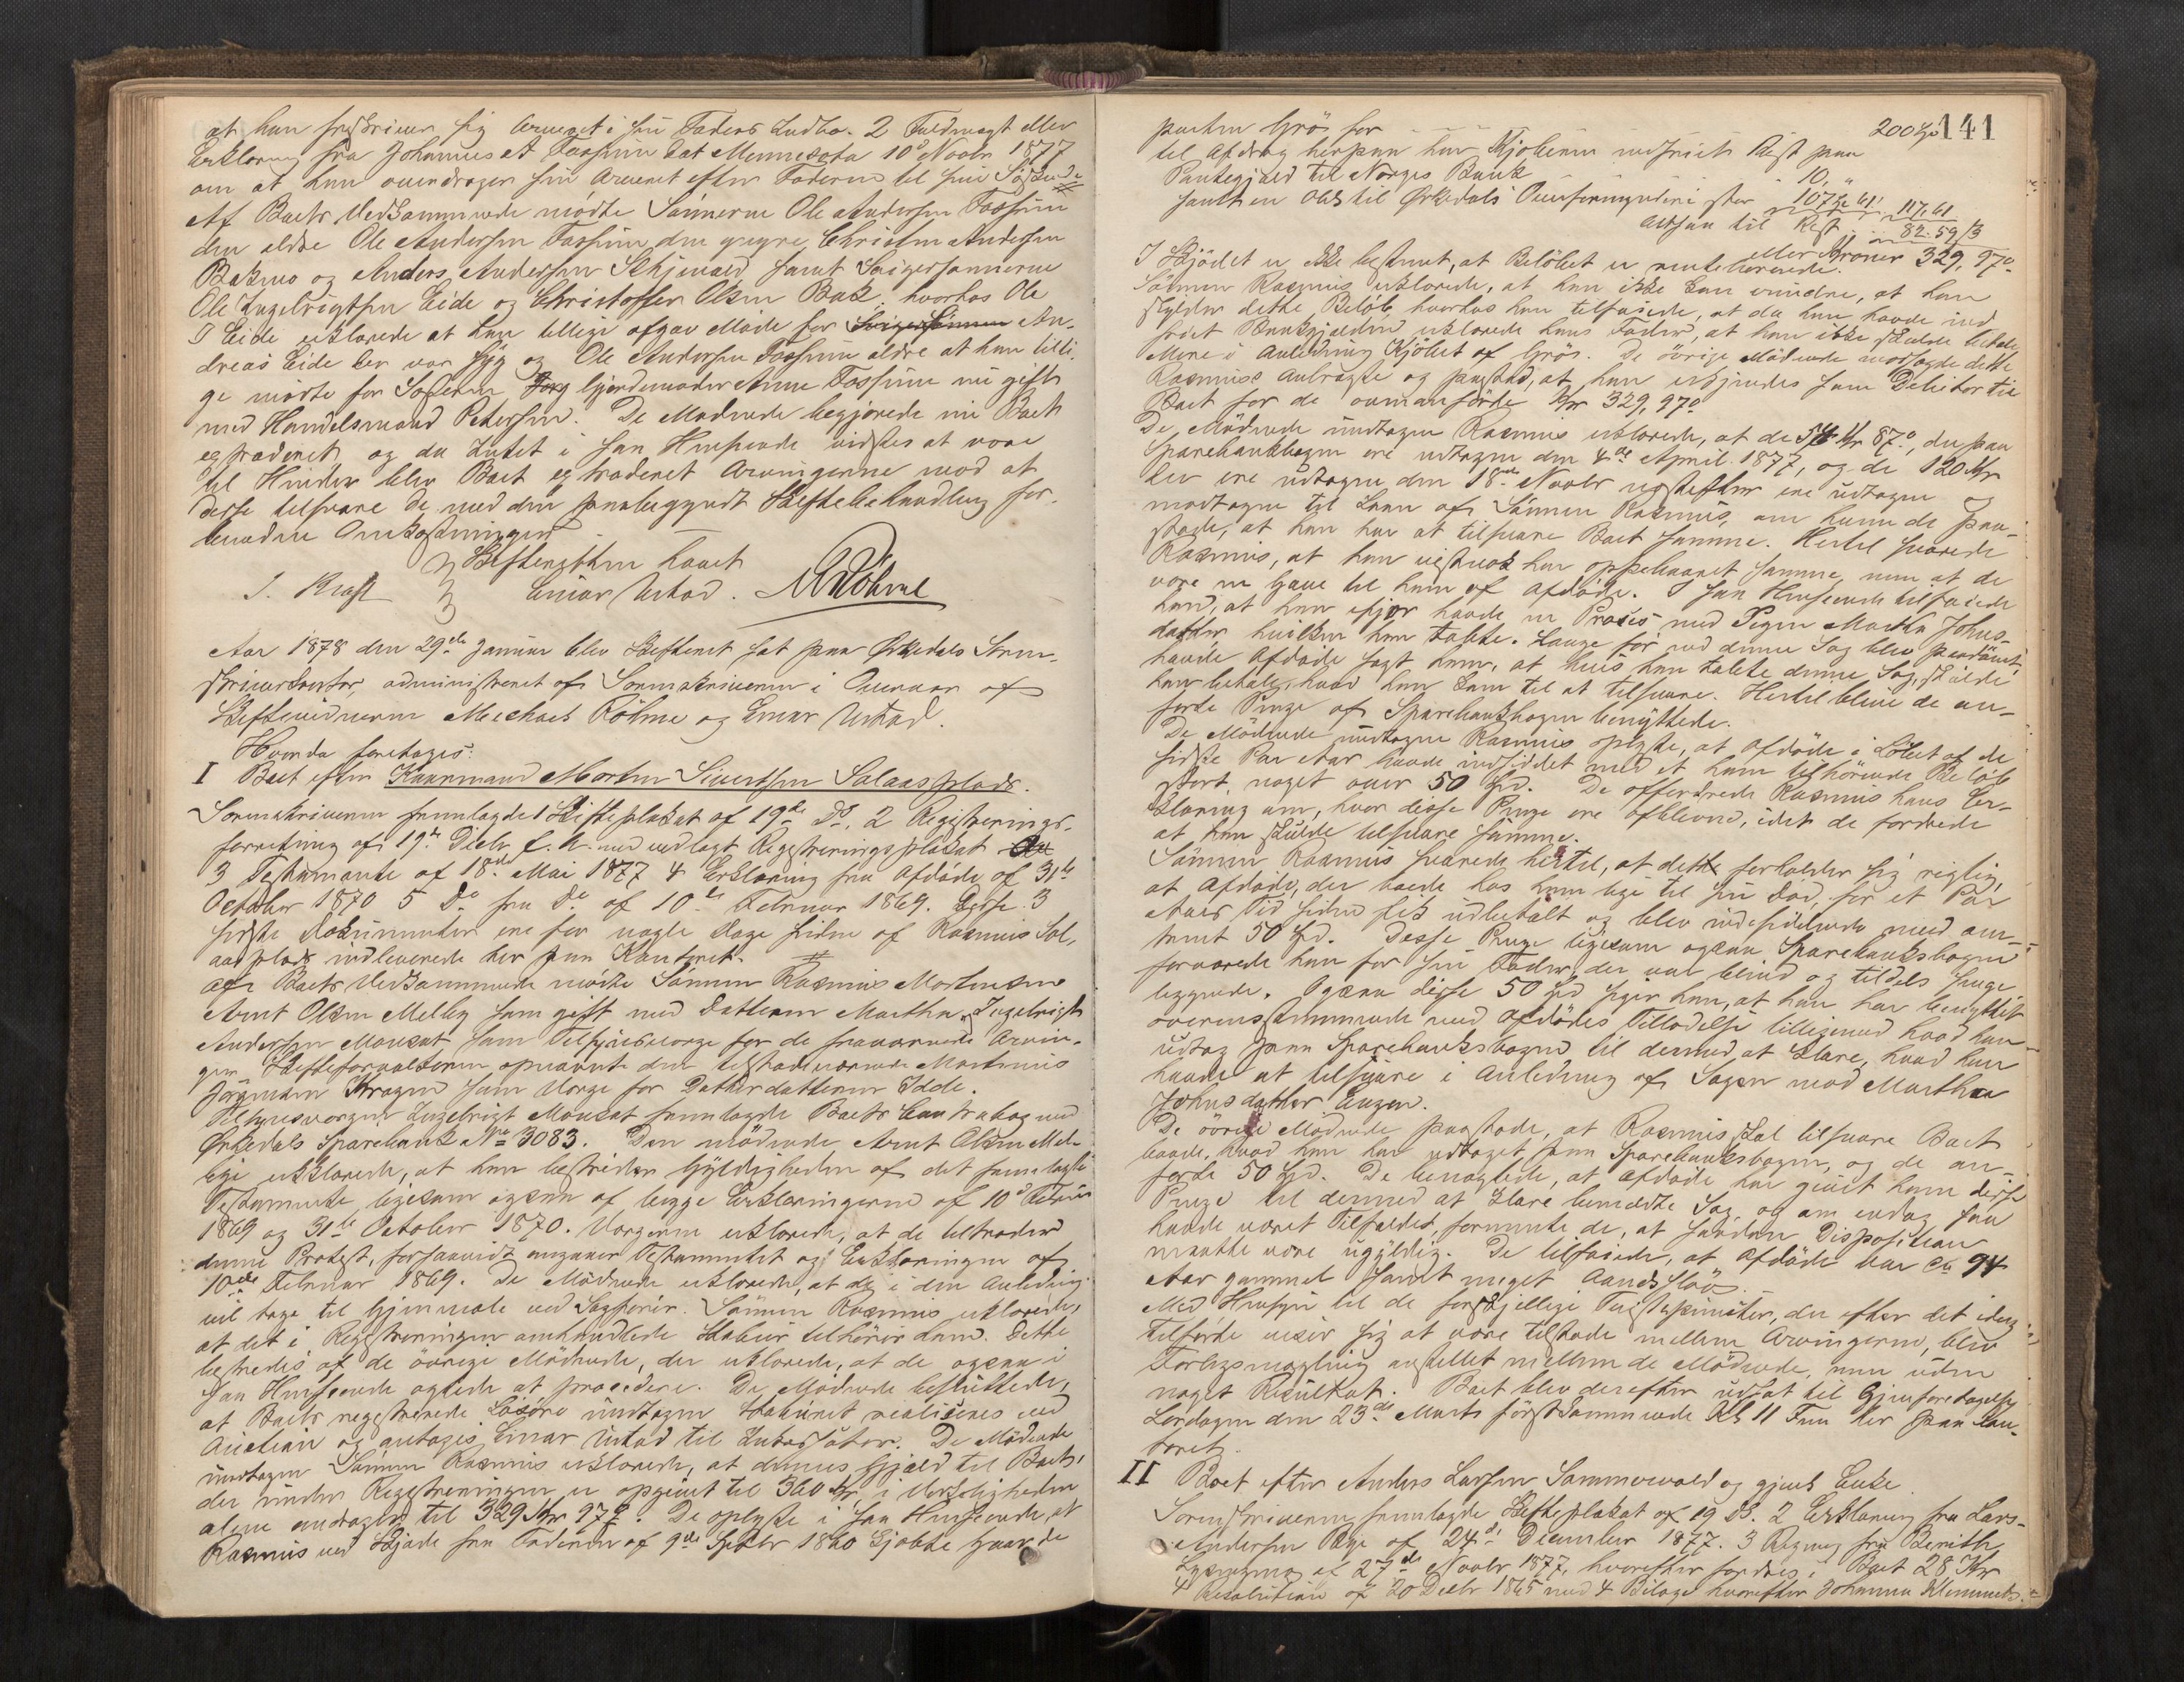 at han fraskriver sig Arveret i sin Faders Indbo. 2 Fuldmagt eller
Erklæring fra Johannes A Fossum dat Mennesota 10de Novbr 1877
om at han overdrager sin Arveret efter Faderen til sine Sødskende
Af Boets Vedkommende mødte Sønnerne Ole Andersen Fossum
den ældre Ole Andersen Fossum den yngre, Christen Andersen
Bakmo og Anders Andersen Skjenald samt Svigersønnerne
Ole Ingebrigtsen Eide og Christoffer Olsen Bak. hvorhos Ole
I Eide erklærede at han tillige afgav Møde for Svigersønnen An-
dreas Eide der var syg og Ole Andersen Fossum ældre at han tilli-
ge mødte for Søsteren Gjordemoder Anne Fossum nu gift
med Handelsmand Petersen. De Mødende begjærede nu Boet
extraderet og da Intet i saa Henseende vidstes at være
til Hinder blev Boet extraderet Arvingerne mod at
disse tilsvare de med den paabegyndt Skiftebehandling for-
bundne Omkostninger
Skifteretten hævet
J. Krag Einar Ustad. M Röhme
Aar 1878 den 29de Januar blev Skifteret sat paa Ørkedals Soren-
skriverkontor, administreret af Sorenskriveren i Overvær af
Skiftevidnerne Michael Röhme og Einar Ustad.
Hvorda foretages:
I Boet efter Kaarmand Morten Sivertsen Solaasplads.
Sorenskriveren fremlagde 1 Skifteplakat af 19de ds. 2 Registrerings-
forretning af 19de Decbr f. A. med vedlagt Registreringsplakat
3 Testamente af 18de Mai 1877 4 Erklæring fra Afdøde af 31te
October 1870 5 Do fra Do af 10de Februar 1869. Disse 3
sidste Dokumenter ere for nogle Dage siden af Rasmus Sol-
aasplads indleverede her paa Kontoret.
Af Boets Vedkommende mødte Sønnen Rasmus Mortensen
Arnt Olsen Melby som gift med Datteren Martha, Ingebrigt
Andersen Monset som Tilsynsværge for de fraværende Arvin-
ger. Skifteforvalteren opnævnte den tilstedeværende Martinus
Jørgensen Kragen som Værge for Datterdatteren Odde.
Tilsynsværgen Ingebrigt Monset fremlagde Boets Contrabog med
Ørkedals Sparebank No 3083. Den mødende Arnt Olsen Mel-
bye erklærede, at han bestrider Gyldigheden af det fremlagte
Testamente ligesom ogsaa af begge Erklæringerne af 10de Februar
1869 og 31te October 1870. Værgerne erklærede, at de tiltræder
denne Protest, forsaavidt angaaer Testamentet og Erklæringen af
10de Februar 1869. De Mødende erklærede, at de i den Anledning
vil tage til Gjenmæle ved Sagfører. Sønnen Rasmus erklærede,
at det i Registreringen omhandlede Stabur tilhører ham. Dette
bestredes af de øvrige Mødende, der erklærede, at de ogsaa i
saa Henseende agtede at procedere. De Mødende besluttede,
at Boets registrerede Løsøre undtagen Staburet realiseres ved
Auction og antages Einar Ustad til Inkassator. De Mødende
undtagen Sønnen Rasmus erklærede, at dennes Gjæld til Boet,
der under Registreringen er opgivet til 360 Kr, i Virkeligheden
alene andrager til 329 Kr 97 ø. De oplyste i saa Henseende, at
Rasmus ved Skjøde fra Faderen af 9de Septbr 1860 kjøbte Gaarde
141
parten Grøs for 200 Spd
til Afdrag herpaa har Kjøberen indfriet Rest paa
Pantegjæld til Norges Bank 10, "
samt en Obl til Ørkedals Overformynderi stor 107 61 117, 61
altsaa til Rest 82. 59/3
eller Kroner 329, 97 ø
I Skjødet er ikke bestemt, at Beløbet er rentebærende.
Sønnen Rasmus erklærede, at han ikke kan erindre, at han
skylder dette Beløb, hvorhos han tilføiede, at da han havde ind
friet Bankgjælden erklærede hans Fader, at han ikke skulde betale
Mere i Anledning Kjøbet af Grøs. De øvrige Mødende modsagde dette
Rasmuss Anbragte og paastod, at han udgjordes som Debitor til
Boet for de ovenanførte Kr 329, 97 ø
De Mødende undtagen Rasmus erklærede, at de 54 Kr 87 ø, der paa
Sparebankbogen ere udtagne den 4de April 1877, og de 120 Kr
der ere udtagne den 18de Novbr næstefter ere udtagne og
modtagne til Laan af Sønnen Rasmus, om hvem de paa-
stode, at han har at tilsvare Boet samme. Hertil svarede
Rasmus, at han vistnok har oppebaaret samme, men at de
vare en Gave til ham af Afdøde. I saa Henseende tilføiede
han, at han ifjor havde en Proces med Pigen Martha Johns-
datter hvilken han tabte. Længe før end denne Sag blev paadømt,
havde Afdøde sagt ham, at hvis han tabte denne Sag, skulde
han betale, hvad han kom til at tilsvare. Hertil bleve de an-
førte Penge af Sparebankbogen benyttede.
De Mødende undtagen Rasmus oplyste, at Afdøde i Løbet af de
sidste Par Aar havde indsiddet med et ham tilhørende Beløb
stort, noget over 50 Spd. De opfordrede Rasmus hans Er-
klæring om, hvor disse Penge ere afblevne, idet de fordrede
at han skulde tilsvare samme.
Sønnen Rasmus svarede hertil, at dette forholder sig rigtig,
at Afdøde, der boede hos ham lige til sin Død, for et Par
Aars Tid siden fik udbetalt og blev indesiddende med om-
trent 50 Spd. Disse Penge ligesom ogsaa Sparebanksbogen
forvarede han for sin Fader, der var blind og tildels senge-
liggende. Ogsaa disse 50 Spd siger han, at han har benyttet
overensstemmende med Afdødes Tilladelse tilligemed hvad han
udtog paa Sparebanksbogen til dermed at klare, hvad han
havde at tilsvare i Anledning af Sagen mod Martha
Johnsdatter Engen.
De øvrige Mødende paastode, at Rasmus skal tilsvare Boet
baade, hvad han har udtaget paa Sparebanksbogen, og de an-
førte 50 Spd. De benægtede, at Afdøde har givet ham disse
Penge til dermed at klare bemeldte Sag, og om endog saa
havde været Tilfældet, formente de, at saadan Disposition
maatte være ugyldig. De tilføiede, at Afdøde var ca 94
Aar gammel samt meget aandssløv.
Med Hensyn til de forskjellige Tvistepunkter, der efter det idag
tilførte viser sig at være tilstede mellem Arvingerne, blev
Forligsmægling anstillet mellem de Mødende, men uden
noget Resultat. Boet blev derefter udsat til Gjenforetagelse
Lørdagen den 23de Marts førstkommende Kl 11 Fm her paa Kon-
toret.
II Boet efter Anders Larsen Sommervold og gjenl Enke
Sorenskriveren fremlagde Skifteplakat af 19 ds. 2 Erklæring fra Lars
Andersen Rye af 24de December 1877. 3 Regning fra Berith
af 27de Novbr 1877, hvorefter fordres i Boet 28 Kr
4 Resolution af 20 Decbr 1865 med 4 Bilage hvorefter Johanna Klemmets-